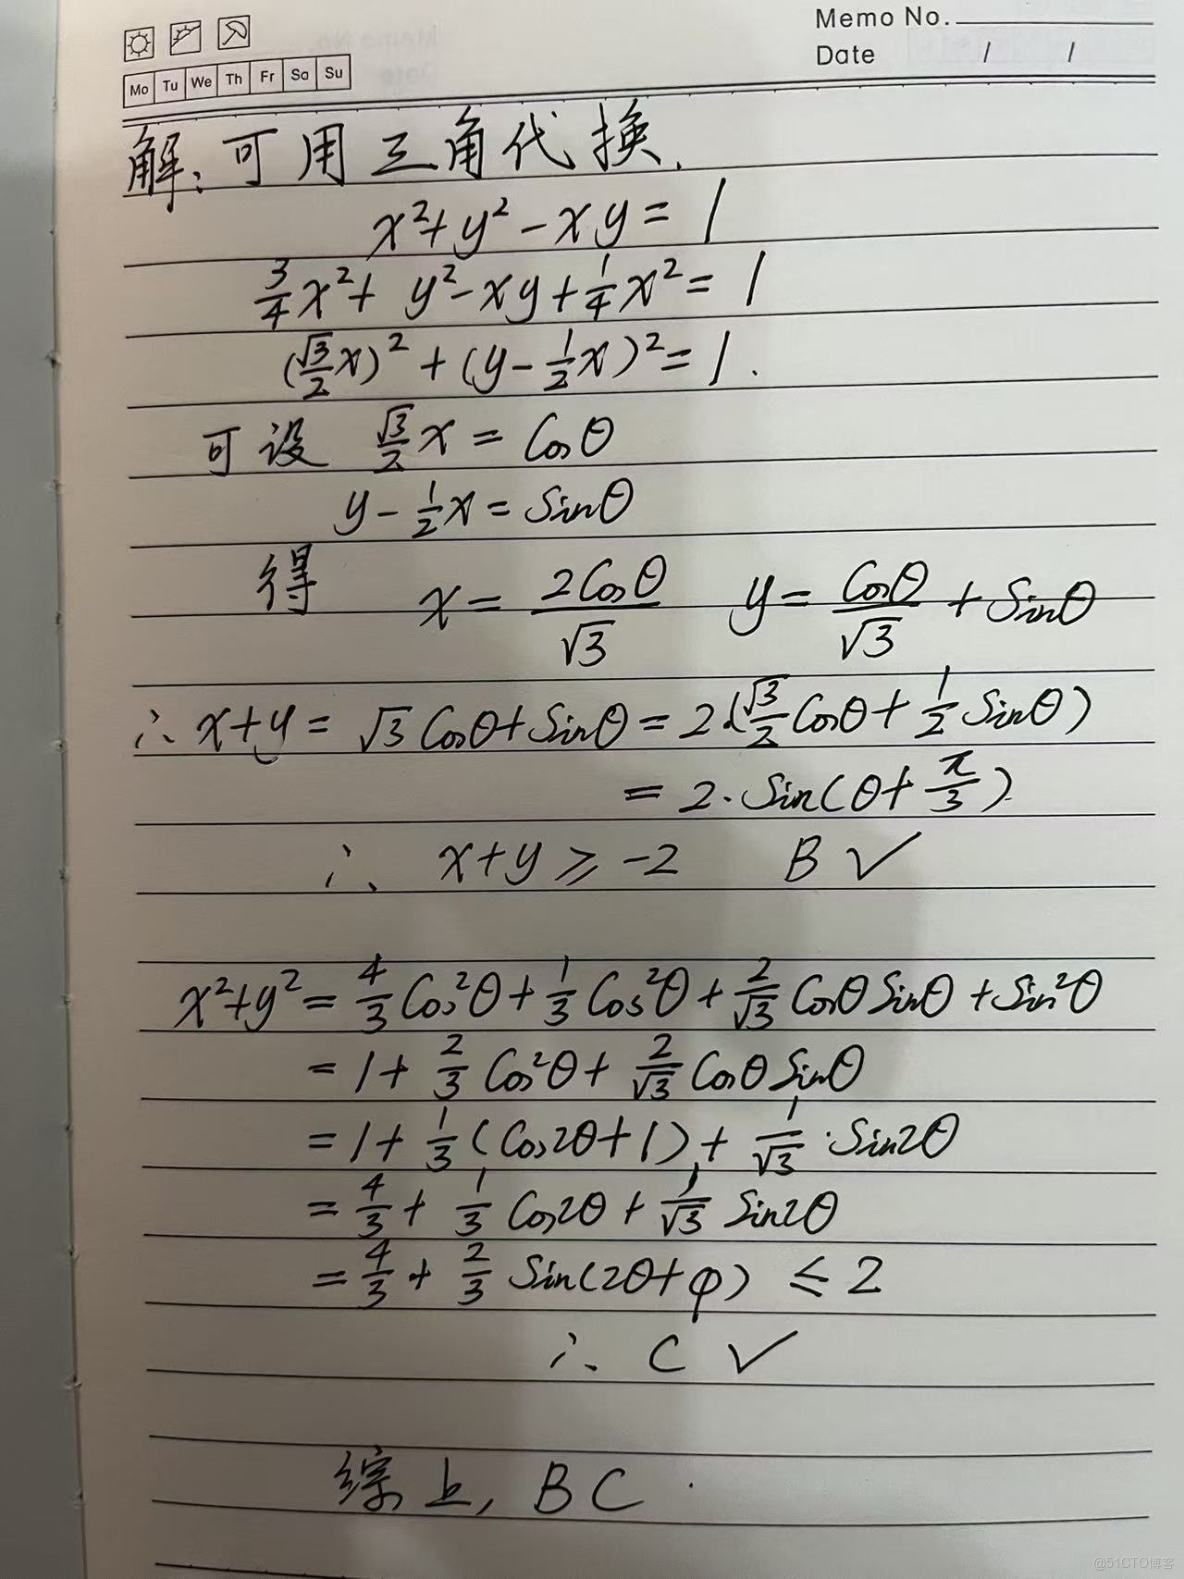 Memo No.
Date / /
Mo Tu We Th Fr Sa Su
解：可用三角代换.
x²+y²-xy=1
3/4x²+y²-xy+1/4x²=1
(√3/2x)²+(y-1/2x)²=1.
可设 √3/2x=Cosθ
y-1/2x=Sinθ
得 x=2Cosθ/√3 y=Cosθ/√3+Sinθ
∴x+y=√3Cosθ+Sinθ=2(√3/2Cosθ+1/2Sinθ)
=2·Sin(θ+π/3).
∴ x+y≥-2 B✓
x²+y²=4/3Cos²θ+1/3Cos²θ+2/√3CosθSinθ+Sin²θ
=1+2/3Cos²θ+2/√3CosθSinθ
=1+1/3(Cos2θ+1)+1/√3·Sin2θ
=4/3+1/3Cos2θ+1/√3Sin2θ
=4/3+2/3Sin(2θ+φ)≤2
∴ C ✓
综上, BC.
@51CTO博客